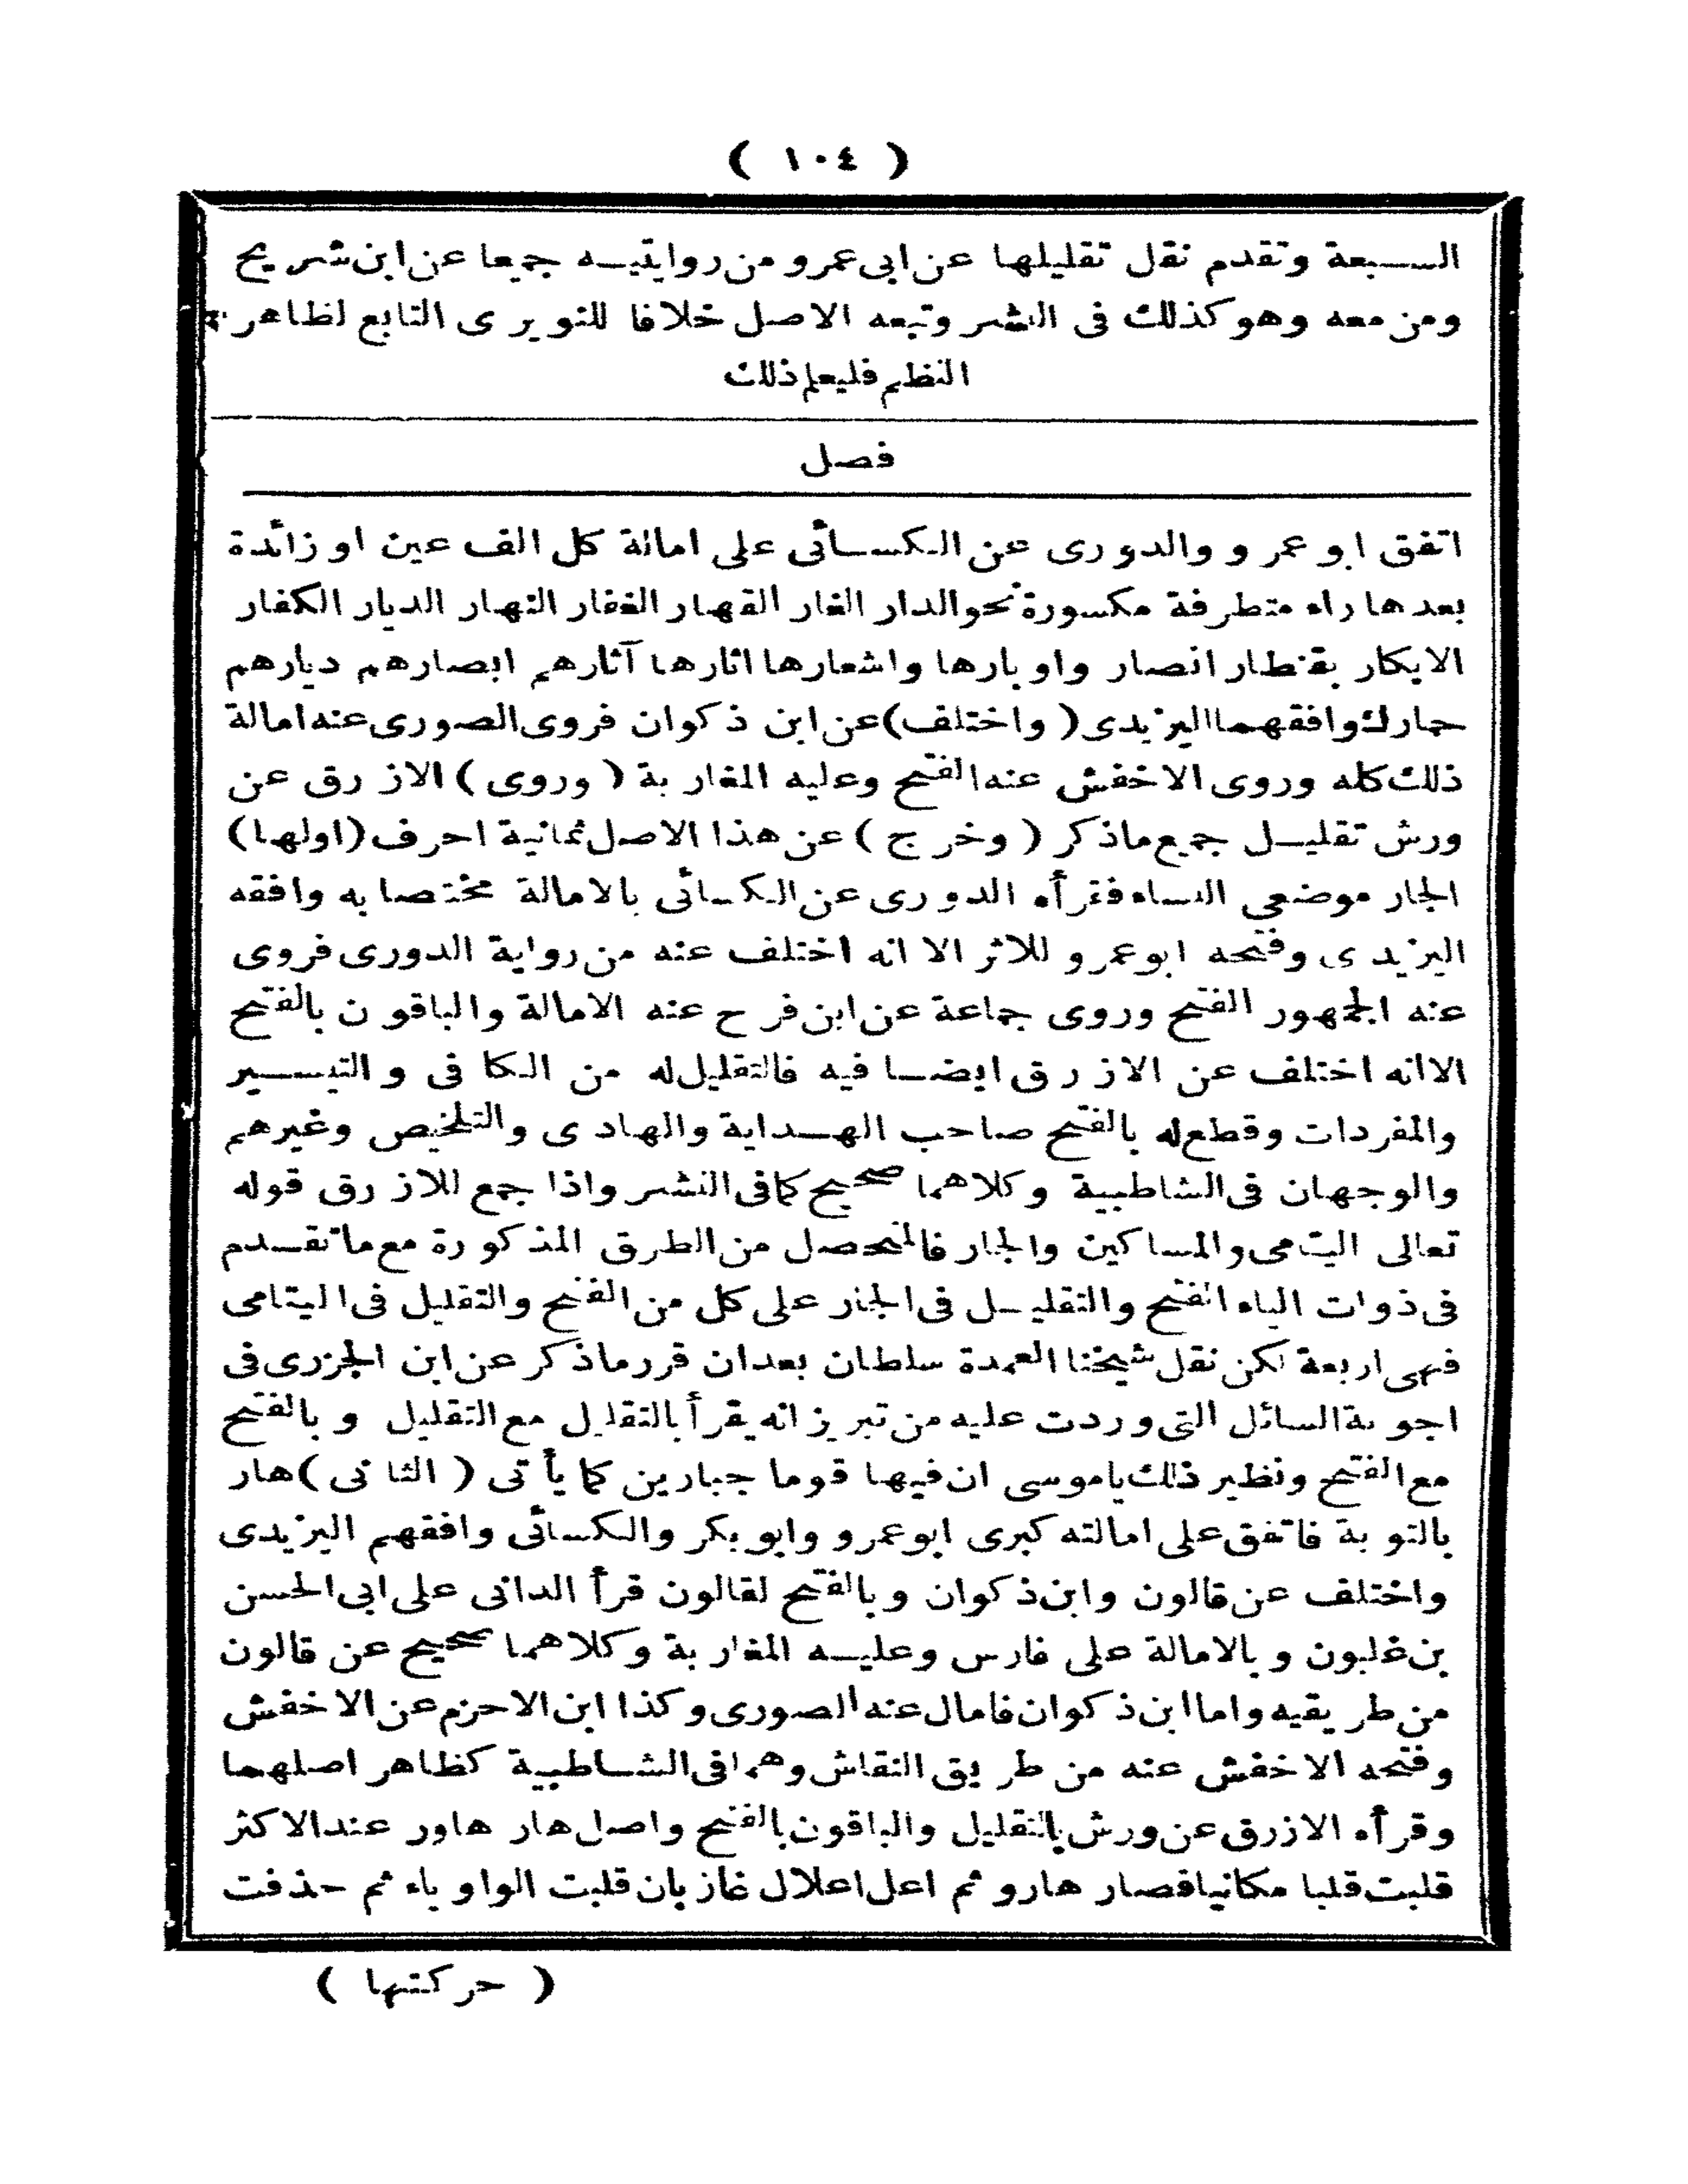 ( ١٠٤ )
السبعة وتقدم نقل تقليلها عن ابى عمرو من روايتيه جميعا عن ابن شريح
ومن معه وهو كذلك فى النشر وتبعه الاصل خلافا للنويرى التابع لظاهر
النظم فليعلم ذلك
فصل
اتفق ابو عمرو والدورى عن الكسائى على امالة كل الف عين او زائدة
بعدها راء متطرفة مكسورة نحو الدار الغار القهار الغفار النهار الديار الكفار
الابكار بقنطار انصار واوبارها واشعارها اثارها آثارهم ابصارهم ديارهم
حمارك وافقهما اليزيدى ( واختلف ) عن ابن ذكوان فروى الصورى عنه امالة
ذلك كله وروى الاخفش عنه الفتح وعليه المغاربة ( وروى ) الازرق عن
ورش تقليل جميع ماذكر ( وخرج ) عن هذا الاصل ثمانية احرف ( اولها )
الجار موضعى النساء فقرأه الدورى عن الكسائى بالامالة مختصا به وافقه
اليزيدى وفتحه ابوعمرو للاثر الا انه اختلف عنه من رواية الدورى فروى
عنه الجمهور الفتح وروى جماعة عن ابن فرح عنه الامالة والباقون بالفتح
الاانه اختلف عن الازرق ايضا فيه فالتقليل له من الكافى والتيسير
والمفردات وقطع له بالفتح صاحب الهداية والهادى والتلخيص وغيرهم
والوجهان فى الشاطبية وكلاهما صحيح كمافى النشر واذا جمع للازرق قوله
تعالى اليتامى والمساكين والجار فالمتحصل من الطرق المذكورة مع ماتقدم
فى ذوات الياء الفتح والتقليل فى الجار على كل من الفتح والتقليل فى اليتامى
فهى اربعة لكن نقل شيخنا العمدة سلطان بعدان قرر ماذكر عن ابن الجزرى فى
اجوبة المسائل التى وردت عليه من تبريز انه يقرأ بالتقليل مع التقليل وبالفتح
مع الفتح ونظير ذلك ياموسى ان فيها قوما جبارين كما يأتى ( الثانى ) هار
بالتوبة فاتفق على امالته كبرى ابوعمرو وابوبكر والكسائى وافقهم اليزيدى
واختلف عن قالون وابن ذكوان وبالفتح لقالون قرأ الدانى على ابى الحسن
بن غلبون وبالامالة على فارس وعليه المغاربة وكلاهما صحيح عن قالون
من طريقيه واما ابن ذكوان فامال عنه الصورى وكذا ابن الاحزم عن الاخفش
وفتحه الاخفش عنه من طريق النقاش وهما فى الشاطبية كظاهر اصلهما
وقرأه الازرق عن ورش بالتقليل والباقون بالفتح واصل هار هاور عند الاكثر
قلبت قلبا مكانيا فصار هارو ثم اعل اعلال غاز بان قلبت الواو ياء ثم حذفت
( حركتها )